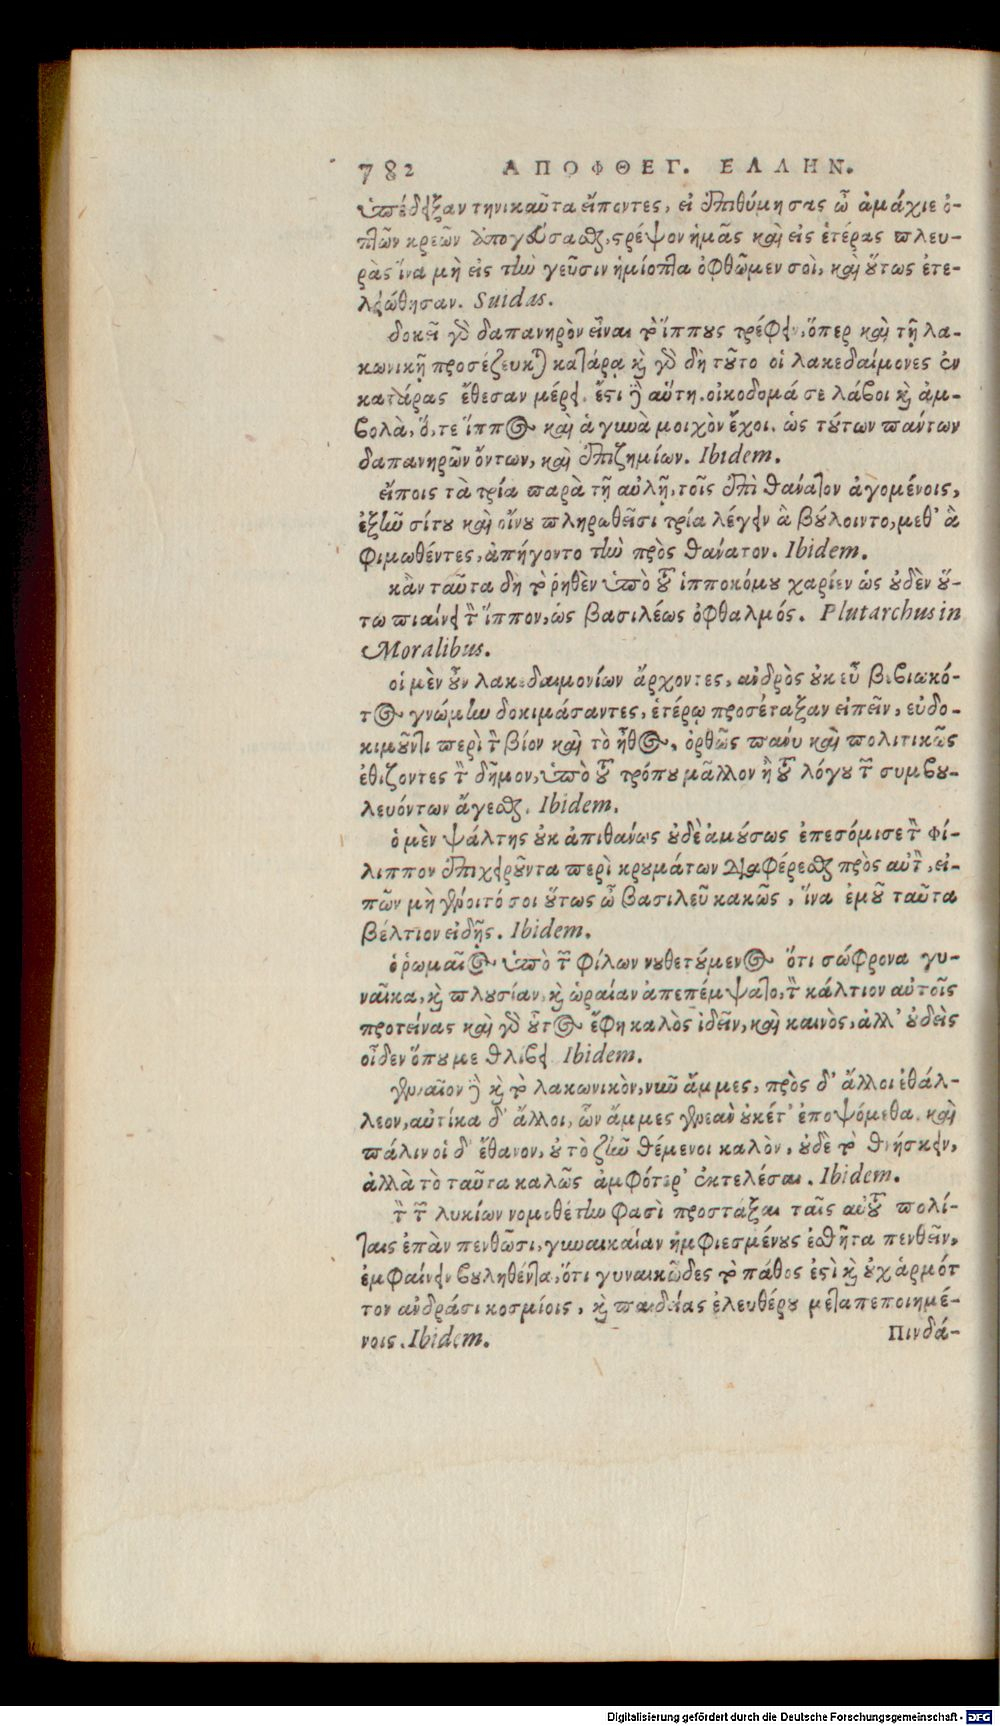 782 ΑΠΟΦΘΕΓ. ΕΛΛΗΝ.
ὑπέδειξαν τηνικαῦτα εἴποντες, εἰ ἐπιθύμησας ὦ ἀμάχιε ὀ-
πτῶν κρεῶν ἀπογεύσασθαι, στρέψον ἡμᾶς καὶ εἰς ἑτέρας πλευ-
ρὰς ἵνα μὴ εἰς τὴν γεῦσιν ἡμίοπτα ὀφθῶμεν σοὶ, καὶ οὕτως ἐτε-
λειώθησαν. Suidas.
δοκεῖ γὰρ δαπανηρὸν εἶναι τὸ ἵππους τρέφειν, ὅπερ καὶ τῇ λα-
κωνικῇ προσέζευκται κατάρᾳ καὶ γὰρ δὴ τοῦτο οἱ λακεδαίμονες ἐν
κατάρας ἔθεσαν μέρει. ἔστι δὲ αὕτη. οἰκοδομά σε λάβοι καὶ ἀμ-
βολὰ, ὅ, τε ἵππος καὶ ἁ γυνὰ μοιχὸν ἔχοι. ὡς τούτων πάντων
δαπανηρῶν ὄντων, καὶ ἐπιζημίων. Ibidem.
εἴποις τὰ τρία παρὰ τῇ αὐλῇ, τοῖς ἐπὶ θάνατον ἀγομένοις,
ἐξῆν σίτου καὶ οἴνου πληρωθεῖσι τρία λέγειν ἃ βούλοιντο, μεθ' ἃ
φιμωθέντες, ἀπήγοντο τὴν πρὸς θάνατον. Ibidem.
κἂν ταῦτα δὴ τὸ ῥηθὲν ὑπὸ τοῦ ἱπποκόμου χαρίεν ὡς οὐδὲν οὕ-
τω πιαίνει τὸν ἵππον, ὡς βασιλέως ὀφθαλμός. Plutarchus in
Moralibus.
οἱ μὲν οὖν λακεδαιμονίων ἄρχοντες, ἀνδρὸς οὐκ εὖ βεβιωκό-
τος γνώμην δοκιμάσαντες, ἑτέρῳ προσέταξαν εἰπεῖν, εὐδο-
κιμοῦντι περὶ τὸν βίον καὶ τὸ ἦθος, ὀρθῶς πάνυ καὶ πολιτικῶς
ἐθίζοντες τὸν δῆμον, ὑπὸ τοῦ τρόπου μᾶλλον ἢ τοῦ λόγου τῶν συμβου-
λευόντων ἄγεσθαι. Ibidem.
ὁ μὲν ψάλτης οὐκ ἀπιθάνως οὐδὲ ἀμούσως ἐπεσόμισε τὸν φί-
λιππον ἐπιχειροῦντα περὶ κρουμάτων διαφέρεσθαι πρὸς αὐτὸν, εἰ-
πὼν μὴ γένοιτό σοι οὕτως ὦ βασιλεῦ κακῶς, ἵνα ἐμοῦ ταῦτα
βέλτιον εἰδῇς. Ibidem.
ὁ ῥωμαῖος ὑπὸ τῶν φίλων νουθετούμενος ὅτι σώφρονα γυ-
ναῖκα, καὶ πλουσίαν, καὶ ὡραίαν ἀπεπέμψατο, τὸν κάλτιον αὐτοῖς
προτείνας καὶ γὰρ οὗτος ἔφη καλὸς ἰδεῖν, καὶ καινὸς, ἀλλ' οὐδεὶς
οἶδεν ὅπου με θλίβει Ibidem.
γενναῖον δὲ καὶ τὸ λακωνικὸν, νῦν ἄμμες, πρὸς δ' ἄλλοι ἐθάλ-
λεον, αὐτίκα δ' ἄλλοι, ὧν ἄμμες γενεὰν οὐκέτ' ἐποψόμεθα. καὶ
πάλιν οἱ δ' ἔθανον, οὐ τὸ ζῆν θέμενοι καλὸν, οὐδὲ τὸ θνήσκειν,
ἀλλὰ τὸ ταῦτα καλῶς ἀμφότερ' ἐκτελέσαι. Ibidem.
τὸν τῶν λυκίων νομοθέτην φασὶ προστάξαι ταῖς αὐτοῦ πολί-
ταις ἐπὰν πενθῶσι, γυναικαίαν ἠμφιεσμένους ἐσθῆτα πενθεῖν,
ἐμφαίνειν βουληθέντα, ὅτι γυναικῶδες τὸ πάθος ἐστὶ καὶ οὐχ ἁρμότ
τον ἀνδράσι κοσμίοις, καὶ παιδείας ἐλευθέρου μεταπεποιημέ-
νοις. Ibidem. Πινδά-
Digitalisierung gefördert durch die Deutsche Forschungsgemeinschaft - DFG